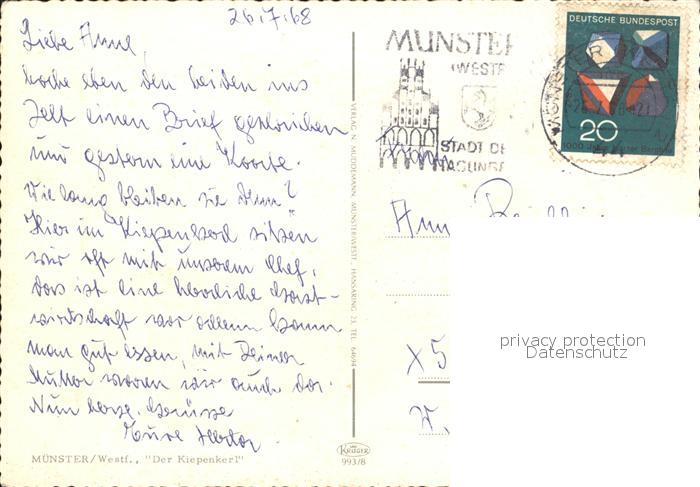 26.7.68
Liebe Anne,
habe eben den beiden ins
Zelt einen Brief geschrieben
und gestern eine Karte.
Wie lang bleiben sie denn?
Hier im Kiepenkerl sitzen
wir oft mit unserem Chef,
das ist eine herrliche Gast-
wirtschaft vor allem kann
man gut essen, mit Deiner
Mutter waren wir auch da.
Nun herzl. Grüsse
Eure
MÜNSTER/Westf., "Der Kiepenkerl"
VERLAG N. MUDDEMANN, MÜNSTER/WESTF., HANSARING 23, TEL. 64694
KRÜGER
993/8
MÜNSTER
(WESTF
STADT DE
DEUTSCHE BUNDESPOST
20
1000 Jahre Harzer Bergbau
MÜNSTER
X5
privacy protection
Datenschutz